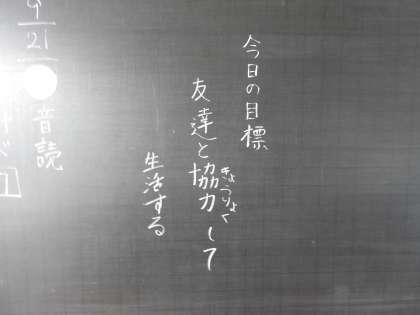 今日の目標
友達と協力して
きょうりょく
生活する
9/21
音読